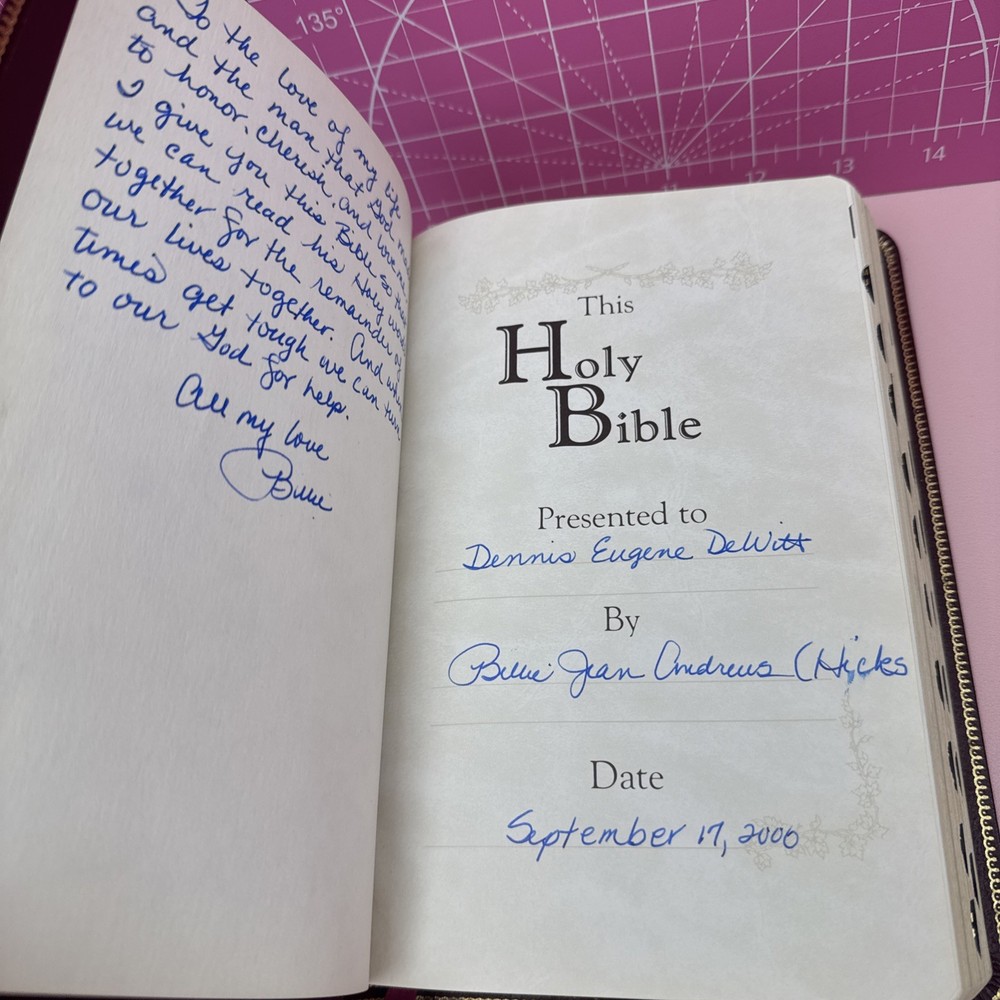 To the love of my life
and the man that God made
to honor, cherish, and love me.
I give you this Bible so that
we can read his Holy word
together for the remainder of
our lives together. And when
times get tough we can turn
to our God for help.
All my love
Billie
135°
11
12
13
14
This
Holy
Bible
Presented to
Dennis Eugene DeWitt
By
Billie Jean Andrews (Hicks
Date
September 17, 2000